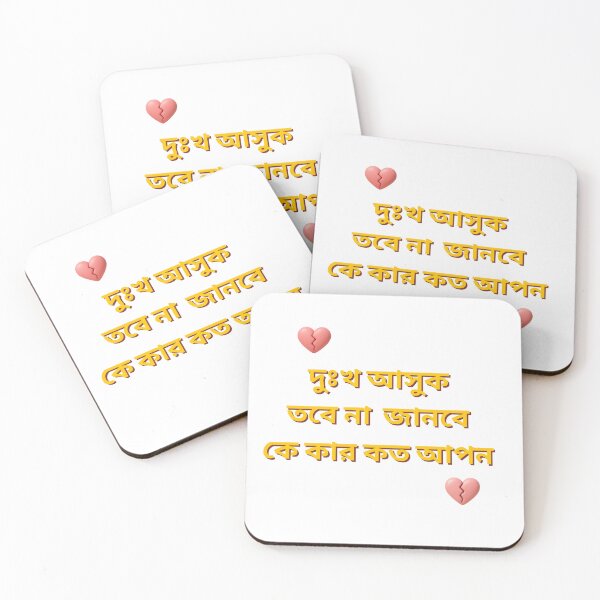 দুঃখ আসুক
তবে
দুঃখ আসুক
তবে না জানবে
কে কার কত আপন
দুঃখ আসুক
তবে না জানবে
কে কার কত
দুঃখ আসুক
তবে না জানবে
কে কার কত আপন